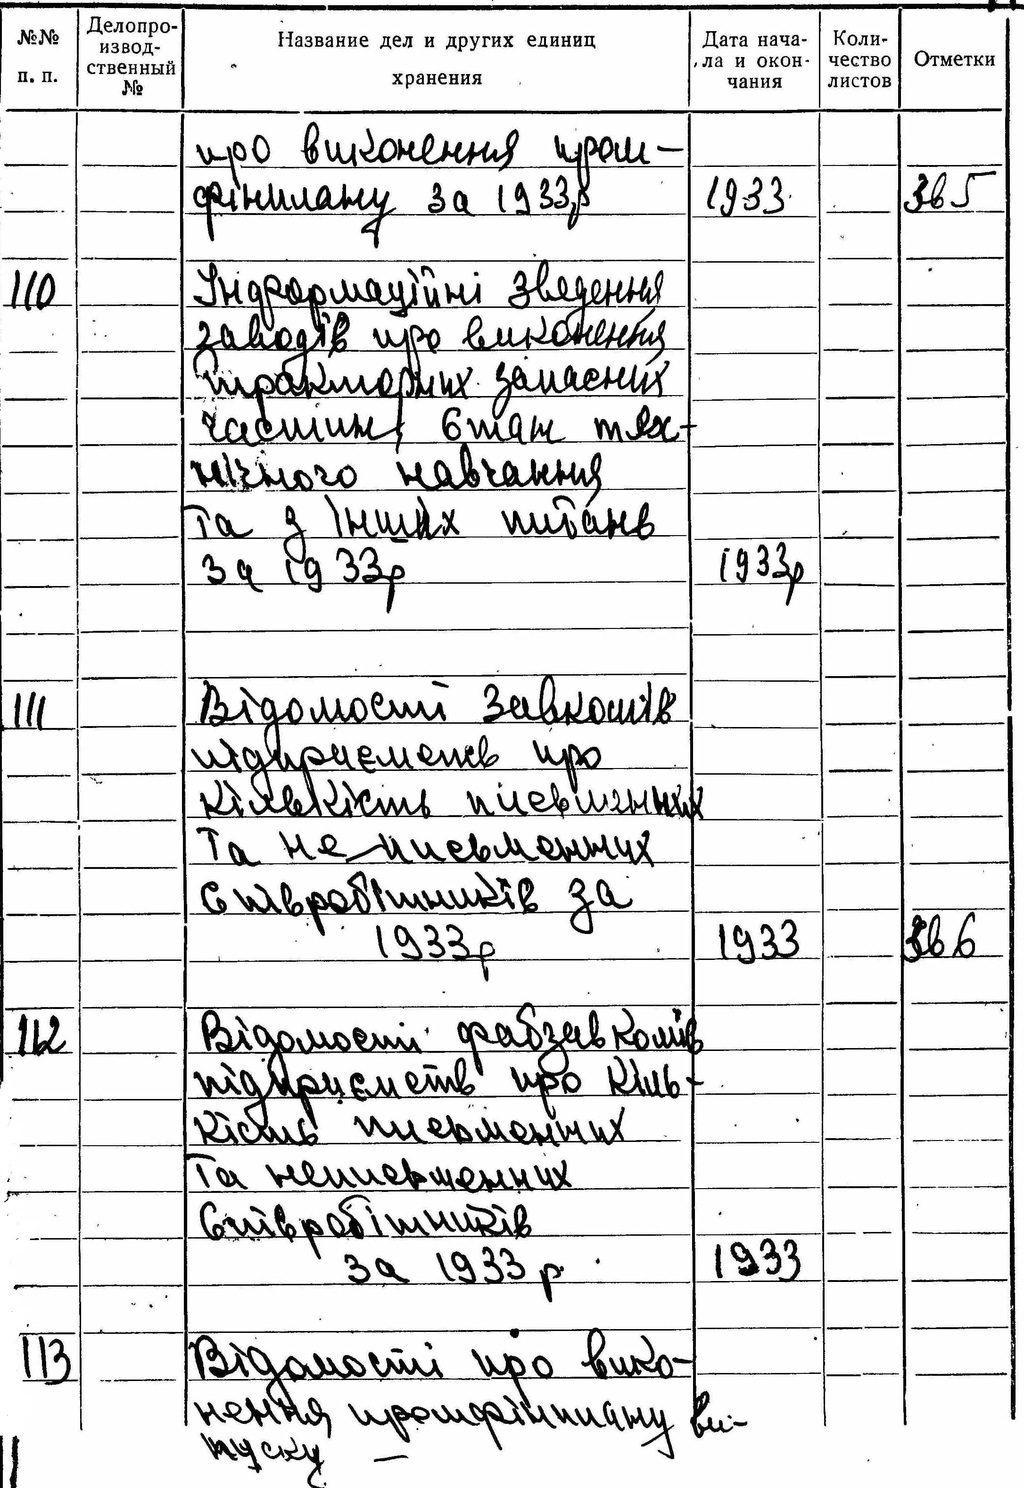 №№ п. п.
Делопро-
извод-
ственный
№
Название дел и других единиц
хранения
Дата нача-
ла и окон-
чания
Коли-
чество
листов
Отметки
про виконення пром-
фінплану за 1933р 1933
110 Інформаційні зведення
заводів про виконення
тракторних запасних
частин, стан тех-
нічного навчання
та з інших питань
за 1933р 1933р
111 Відомості завкомів
підприємств про
кількість письменних
та не письменних
співробітників за
1933р 1933
112 Відомості фабзавкомів
підприємств про кіль-
кість письменних
та неписьменних
співробітників
за 1933 р. 1933
113 Відомості про вико-
нення промфінплану ви-
пуску